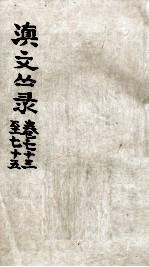 滇文丛录
卷七十三
至七十五